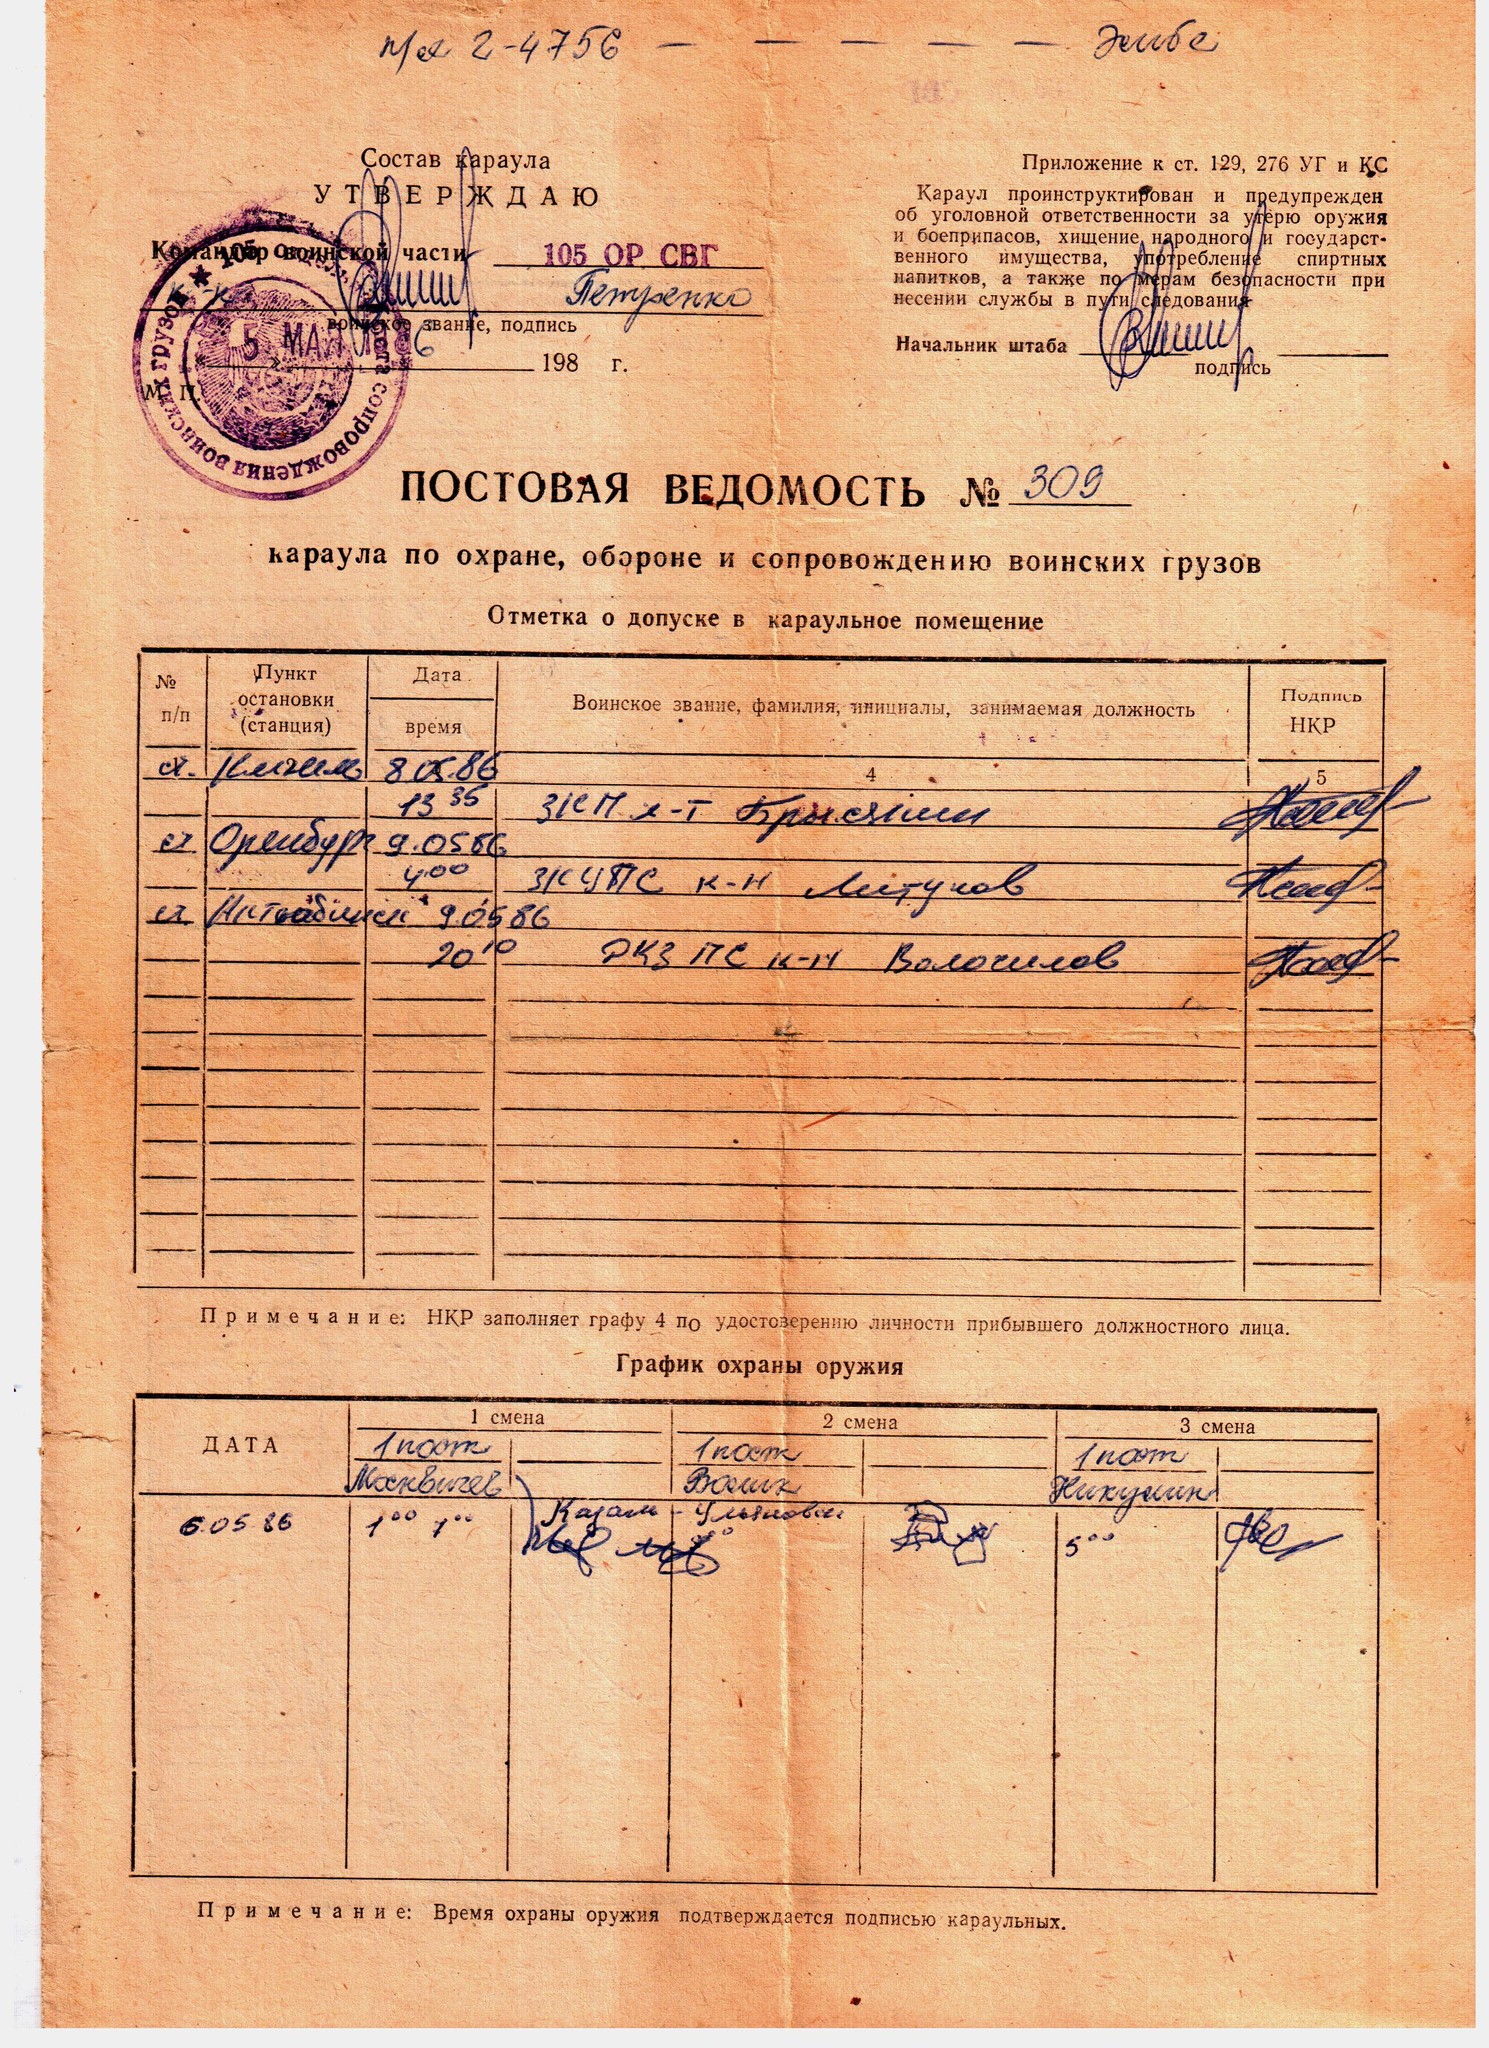 2-4756 — — — — — Эмба
Состав караула
УТВЕРЖДАЮ
Командир воинской части 105 ОР СВГ
Петренко
воинское звание, подпись
5 МАЯ 1986
198 г.
М. П.
сопровождения воинских грузов ★ 105
Приложение к ст. 129, 276 УГ и КС
Караул проинструктирован и предупрежден
об уголовной ответственности за утерю оружия
и боеприпасов, хищение народного и государст-
венного имущества, употребление спиртных
напитков, а также по мерам безопасности при
несении службы в пути следования
Начальник штаба
подпись
ПОСТОВАЯ ВЕДОМОСТЬ № 309
караула по охране, обороне и сопровождению воинских грузов
Отметка о допуске в караульное помещение
№ п/п
Пункт остановки (станция)
Дата
время
Воинское звание, фамилия, инициалы, занимаемая должность
Подпись НКР
4 5
ст. Кинель 8.05.86
13 35 ЗКП л-т
ст Оренбург 9.05.86
4 00 к-н
ст Актюбинск 9.05.86
20 10 ПС к-н Волочилов
Примечание: НКР заполняет графу 4 по удостоверению личности прибывшего должностного лица.
График охраны оружия
ДАТА
1 смена 2 смена 3 смена
1 пост 1 пост 1 пост
Москвичев Волик Никулин
Казань - Ульяновск
6.05.86 1 00 7 00 5 00
Примечание: Время охраны оружия подтверждается подписью караульных.